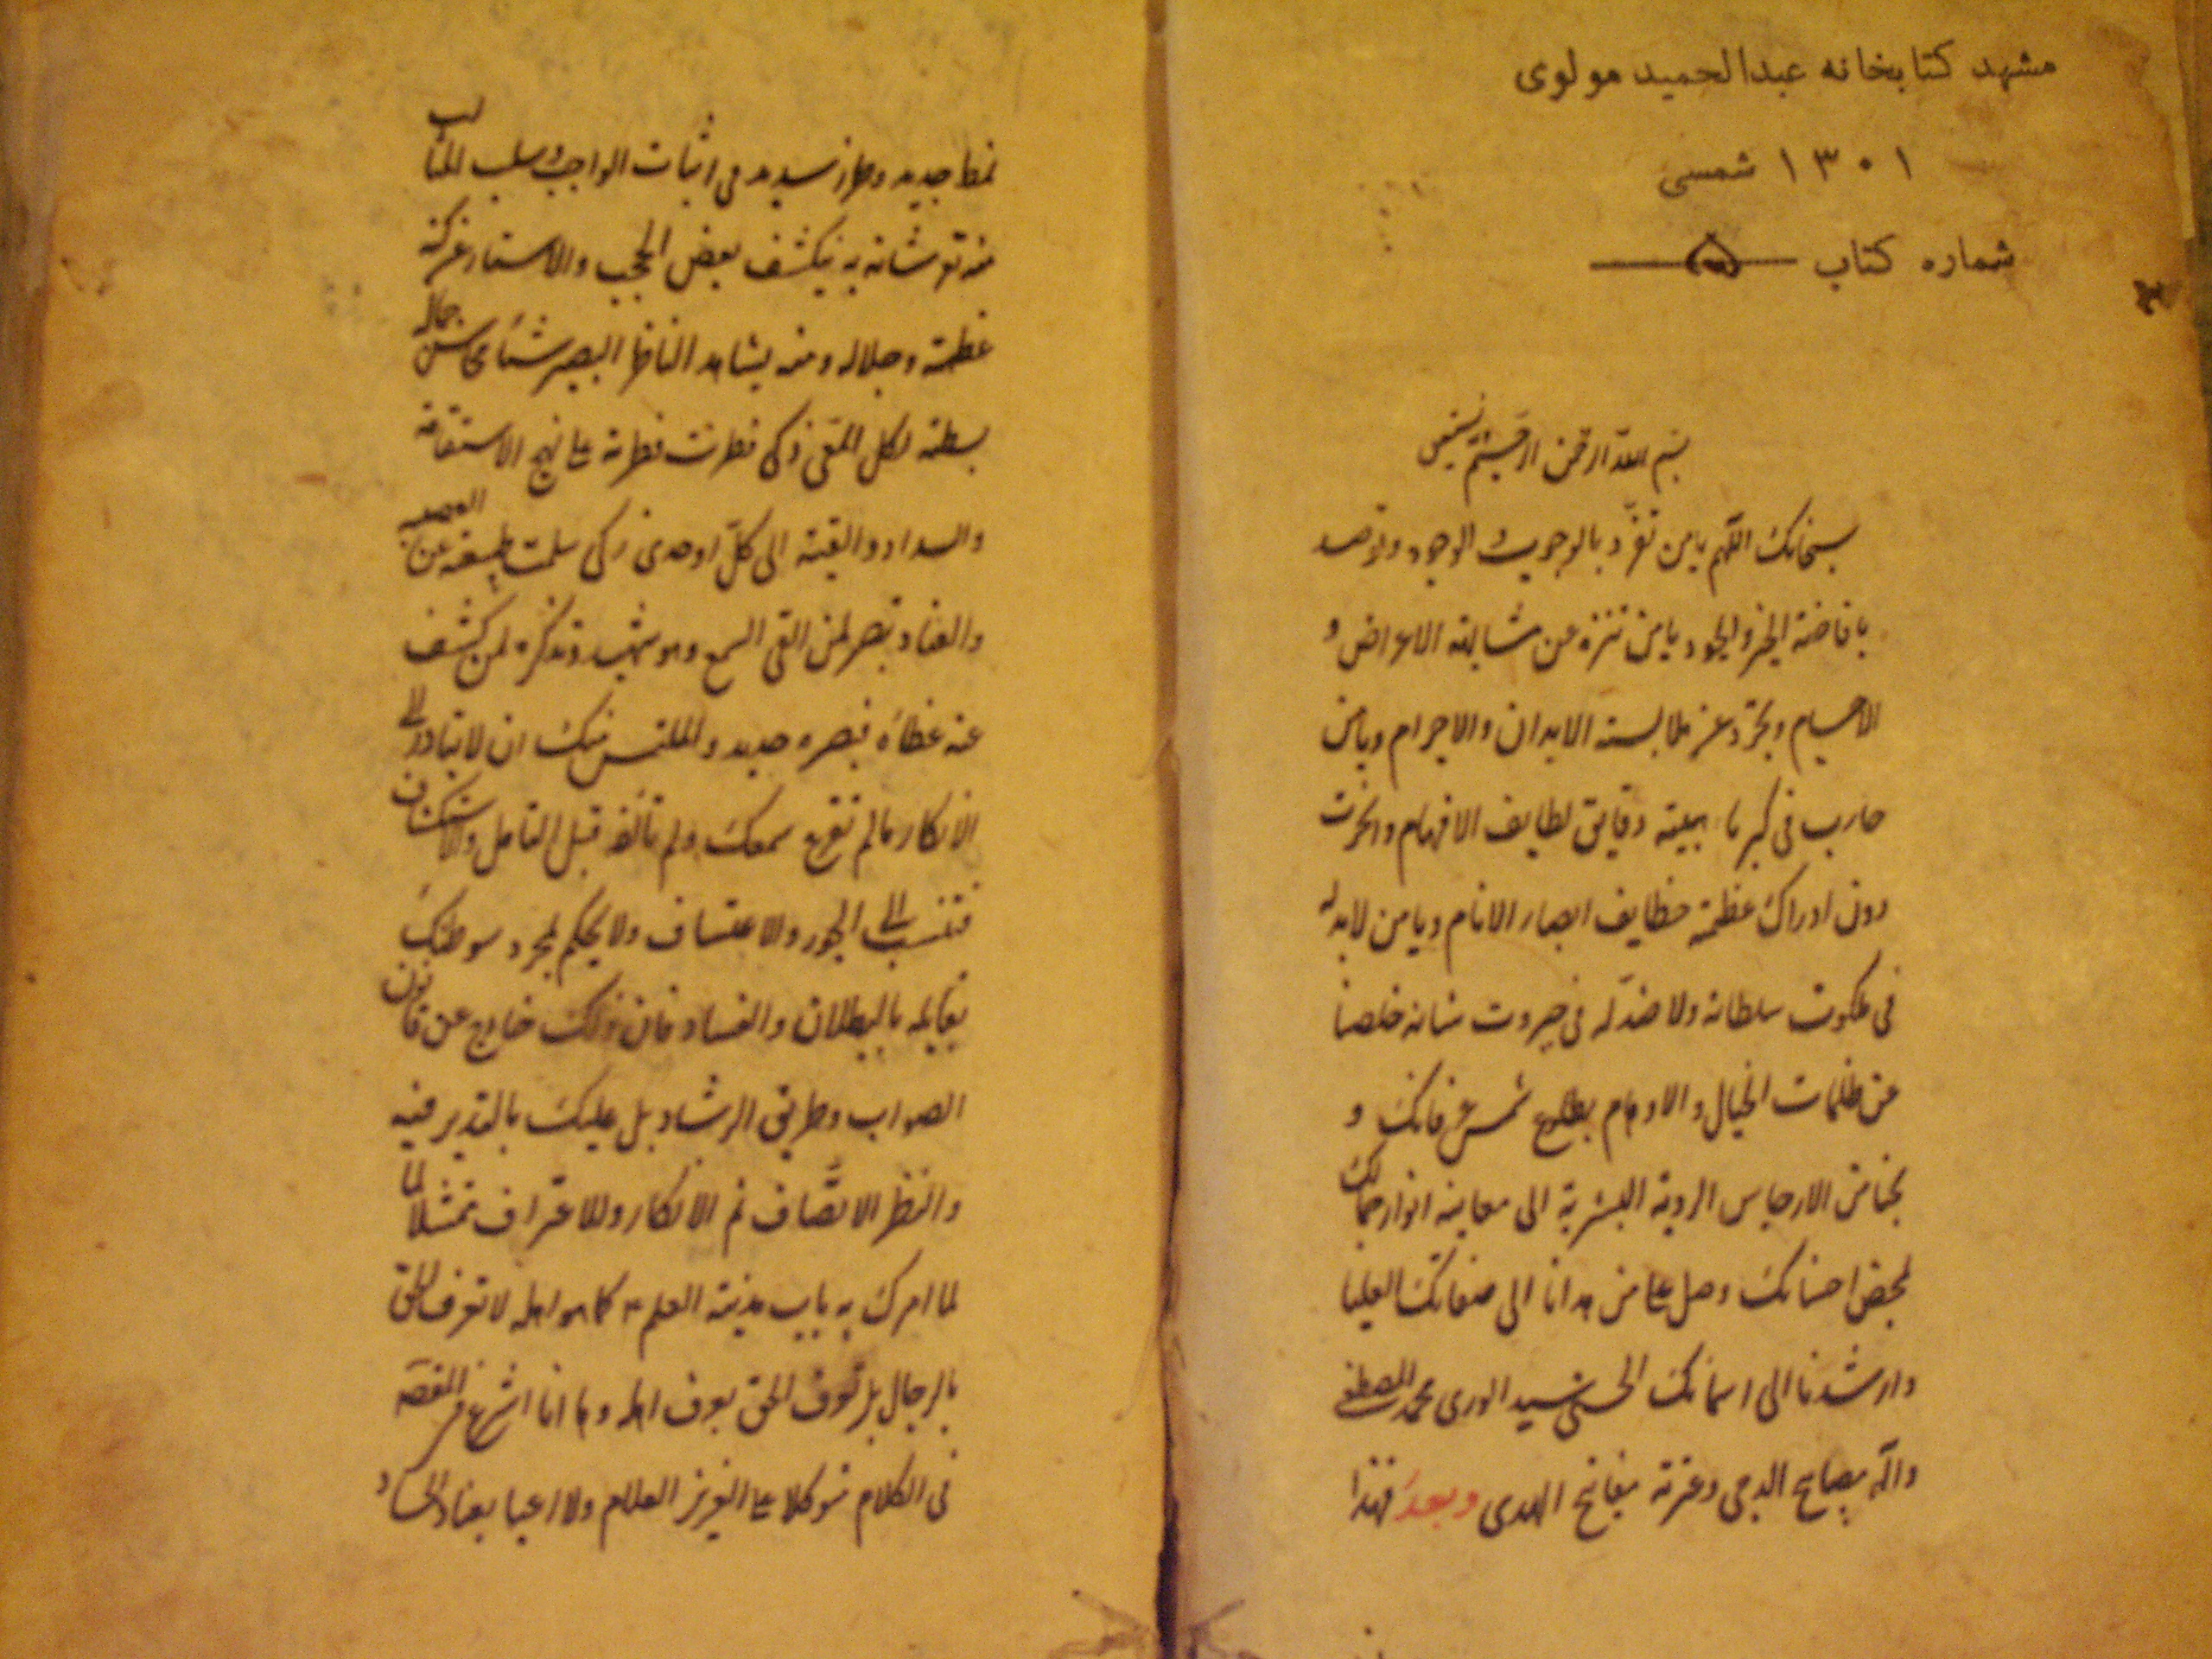 مشهد کتابخانه عبدالحمید مولوی
۱۳۰۱ شمسی
شماره کتاب
بسم الله الرحمن الرحیم و به نستعین
سبحانک اللهم یا من تفرد بالوجوب الوجود و توحد
بافاضة الخیر و الجود یا من تنزه عن مشابهة الاعراض و
الاجسام و تجرد عن ملابسة الابدان و الاجرام و یا من
حارت فی کبریاء هیبته دقایق لطایف الافهام و انحسرت
دون ادراک عظمته خطایف ابصار الانام و یا من لا ند له
فی ملکوت سلطانه و لا ضد له فی جبروت شانه خلصنا
عن ظلمات الخیال و الاوهام بطلوع شمس عرفانک و
نجنا من الارجاس الردیة البشریة الی معاینة انوار جمالک
لمحض احسانک و صل علی من هدانا الی صفاتک العلیا
و ارشدنا الی اسمائک الحسنی سید الوری محمد المصطفی
و آله مصابیح الدجی و عترته مفاتیح الهدی و بعد فهذا
نمط جدید و طراز سدید فی اثبات الواجب و سلب المثالب
عنه تعو شانه به ینکشف بعض الحجب و الاستار عن کنه
عظمته و جلاله و منه یشاهد الناظر البصیر شیئا من محاسن جماله
بسطته لکل المعی ذکی فطرت فطرته علی نهج الاستقامة
و السداد و القیته الی کل اوحدی زکی سلمت طبیعته عن العصبیة
و العناد تبصرة لمن القی السمع و هو شهید و تذکرة لمن کشف
عنه غطاءه فبصره حدید و الملتمس منک ان لا تبادر الی
الانکار مالم تقرع سمعک و لم تالفه قبل التامل و الاستکشاف
فتنسب الی الجور و الاعتساف و لا تحکم لمجرد سوء ظنک
بقایله بالبطلان و الفساد فان ذلک خارج عن قانون
الصواب و طریق الرشاد بل علیک بالتدبر فیه
و النظر الانصاف ثم الانکار و للاعتراف تمثلا لما
لما امرک به باب مدینة العلم ع کما هو اهله لا تعرف الحق
بالرجال بل تعرف الحق تعرف اهله و ها انا اشرع فی المقصد
فی الکلام متوکلا علی العزیز العلام و لا اعبا بعناد الحساد